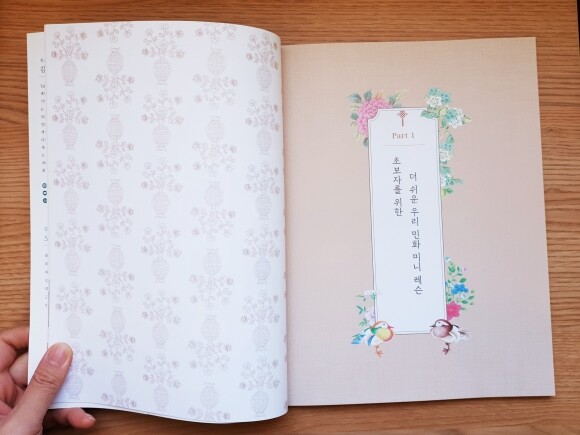 Part 1
초보자를 위한
더 쉬운 우리 민화 미니 레슨